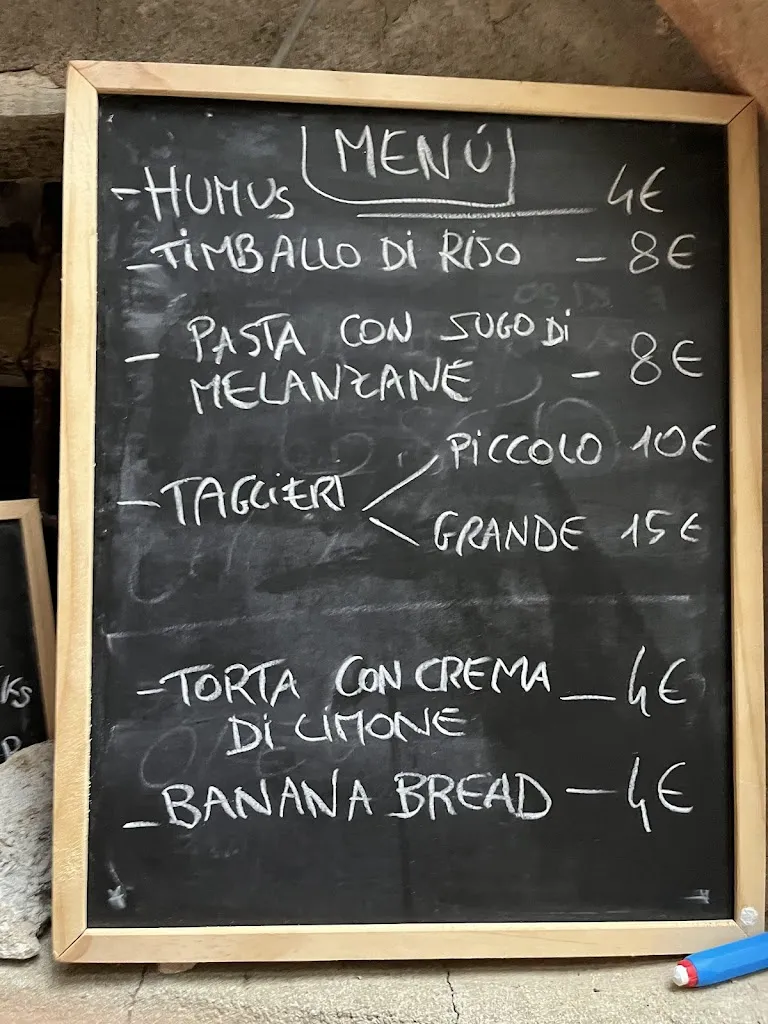 MENÚ
- HUMUS 4€
- TIMBALLO DI RISO - 8€
- PASTA CON SUGO DI
MELANZANE - 8€
- TAGLIERI
PICCOLO 10€
GRANDE 15€
- TORTA CON CREMA - 4€
DI LIMONE
- BANANA BREAD - 4€
KS